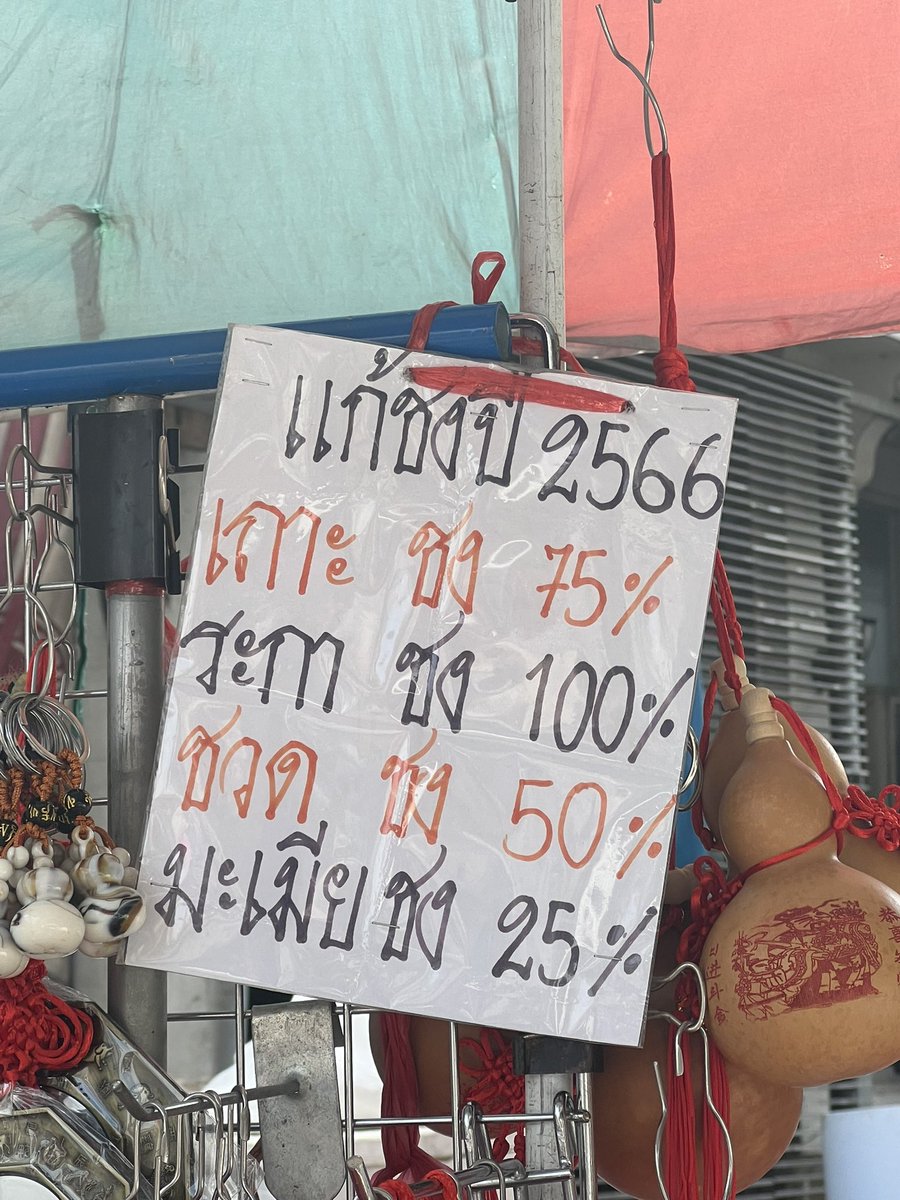 แก้ชงปี 2566
เถาะ ชง 75%
ระกา ชง 100%
ชวด ชง 50%
มะเมีย ชง 25%